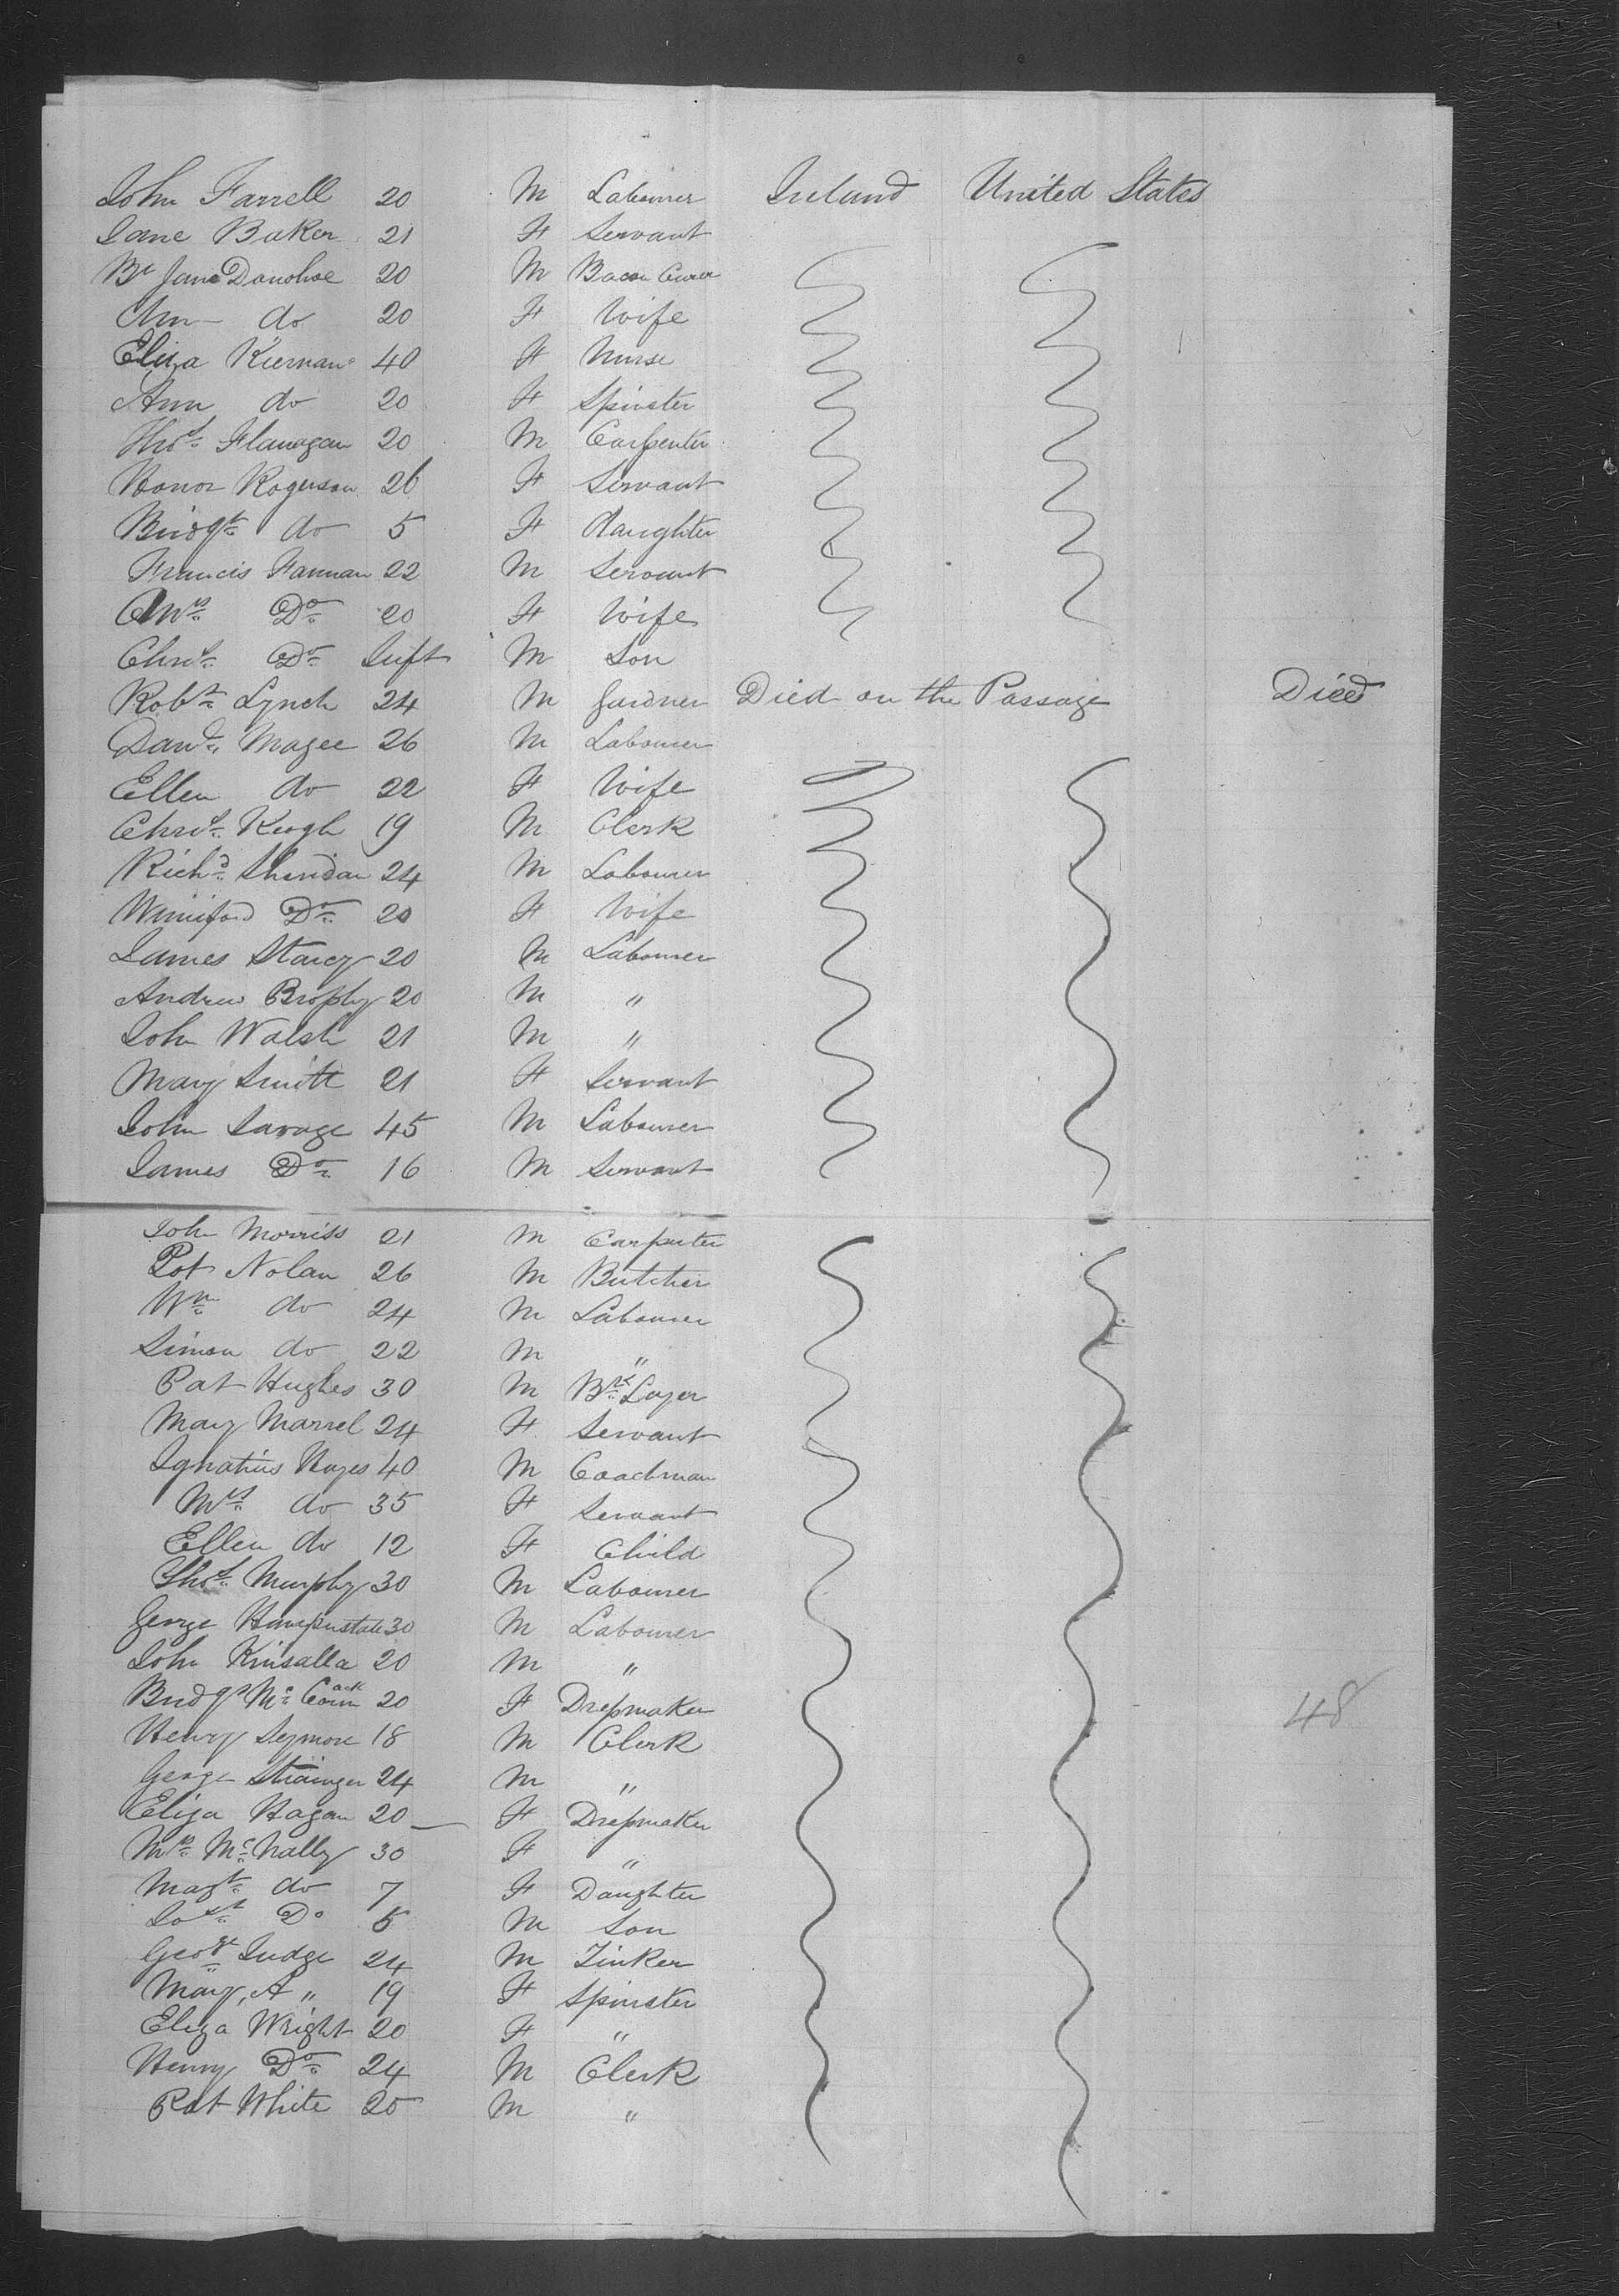 John Farrell 20 M Labourer Ireland United States
Jane Baker 21 F Servant
Jane Donohoe 20 M Bacon Curer
Ann do 20 F Wife
Eliza Kiernan 40 F Nurse
Ann do 20 F Spinster
Thos Flanagan 20 M Carpenter
Honor Rogerson 26 F Servant
Bridgt do 5 F daughter
Francis Fannan 22 M Servant
Mrs Do 20 F Wife
Chrisr Do Inft M Son
Robt Lynch 24 M Gardner Died on the Passage Died
Magee 26 M Labourer
Ellen do 22 F Wife
Keogh 19 M Clerk
Richd Sheridan 24 M Labourer
Winiford Do 20 F Wife
James Stacy 20 M Labourer
Andrew Brophy 20 M "
John Walsh 21 M "
Mary Smith 21 F Servant
John Savage 45 M Labourer
James Do 16 M Servant
John Morriss 21 M Carpenter
Pat Nolan 26 M Butcher
Wm do 24 M Labourer
Simon do 22 M "
Pat Hughes 30 M Brk Layer
Mary Marrel 24 F Servant
Ignatius Hayes 40 M Coachman
Mrs do 35 F Servant
Ellen do 12 F Child
Thos Murphy 30 M Labourer
George 30 M Labourer
John Kinsalla 20 M "
Bridgt 20 F Dressmaker
Henry Seymore 18 M Clerk 48
George 24 M "
Eliza Hagan 20 F Dressmaker
Mrs McNally 30 F "
Magt do 7 F Daughter
Do 5 M Son
Geoge Judge 24 M Tinker
Mary, A " 19 F Spinster
Eliza Wright 20 F "
Henry Do 24 M Clerk
Pat White 25 M "